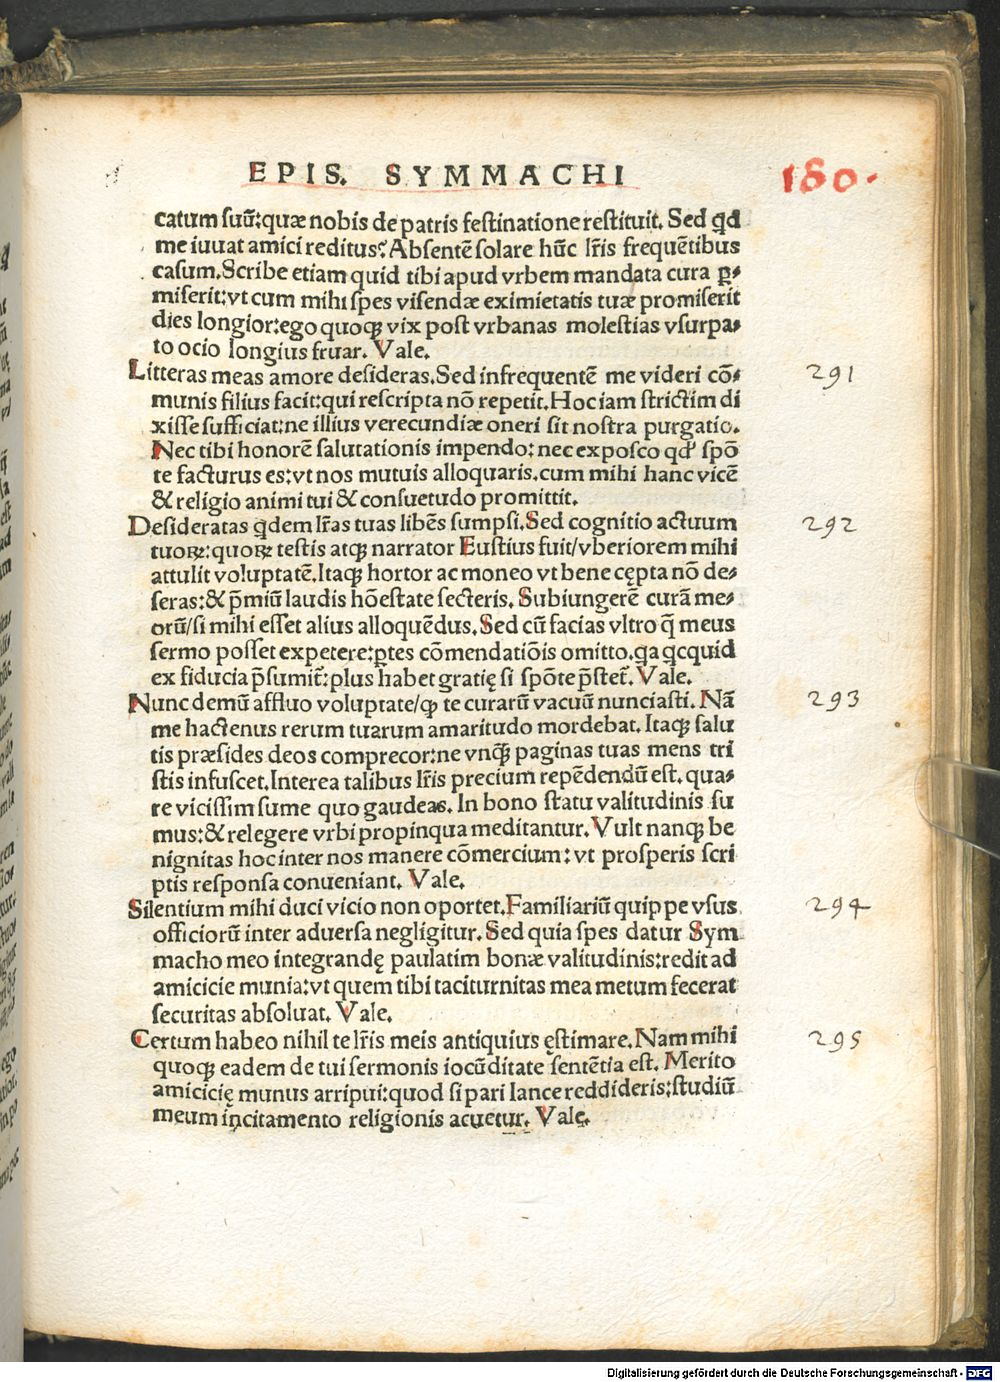 EPIS. SYMMACHI
180.
catum suū:quæ nobis de patris festinatione restituit. Sed qd
me iuuat amici reditus? Absentē solare hūc lr̄is frequētibus
casum. Scribe etiam quid tibi apud vrbem mandata cura p̱-
miserit:vt cum mihi spes visendæ eximietatis tuæ promiserit
dies longior:ego quoqꝫ vix post vrbanas molestias vsurpa-
to ocio longius fruar. Vale.
Litteras meas amore desideras.Sed infrequentē me videri cō-
munis filius facit:qui rescripta nō repetit.Hoc iam strictim di
xisse sufficiat:ne illius verecundiæ oneri sit nostra purgatio.
Nec tibi honorē salutationis impendo: nec exposco qd' spō
te facturus es:vt nos mutuis alloquaris.cum mihi hanc vicē
& religio animi tui & consuetudo promittit.
291
Desideratas qdem lr̄as tuas libēs sumpsi.Sed cognitio actuum
tuoꝝ:quoꝝ testis atqꝫ narrator Eustius fuit/vberiorem mihi
attulit voluptatē.Itaqꝫ hortor ac moneo vt bene cępta nō de-
seras:& p̄miū laudis hōestate secteris. Subiungerē curā me-
orū/si mihi esset alius alloquēdus.Sed cū facias vltro q̄ meus
sermo posset expetere:ꝑtes cōmendatiōis omitto.qa qcquid
ex fiducia p̄sumit̄:plus habet gratię si spōte p̄stet̄. Vale.
292
Nunc demū affluo voluptate/qꝫ te curarū vacuū nunciasti. Nā
me hactenus rerum tuarum amaritudo mordebat. Itaqꝫ salu
tis præsides deos comprecor:ne vnqꝫ̄ paginas tuas mens tri
stis infuscet.Interea talibus lr̄is precium repēdendū est. qua-
re vicissim sume quo gaudeas. In bono statu valitudinis su
mus:& relegere vrbi propinqua meditantur. Vult nanqꝫ be
nignitas hoc inter nos manere cōmercium: vt prosperis scri
ptis responsa conueniant. Vale.
293
Silentium mihi duci vicio non oportet.Familiariū quippe vsus
officiorū inter aduersa negligitur. Sed quia spes datur Sym
macho meo integrandę paulatim bonæ valitudinis:redit ad
amicicie munia:vt quem tibi taciturnitas mea metum fecerat
securitas absoluat. Vale.
294
Certum habeo nihil te lr̄is meis antiquius ęstimare. Nam mihi
quoqꝫ eadem de tui sermonis iocūditate sentētia est. Merito
amicicię munus arripui:quod si pari lance reddideris:studiū
meum incitamento religionis acuetur. Vale.
295
Digitalisierung gefördert durch die Deutsche Forschungsgemeinschaft - DFG